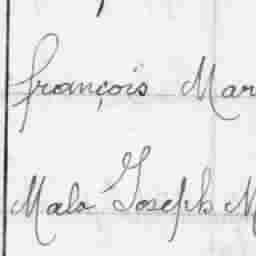 françois Mar
Malo Joseph M